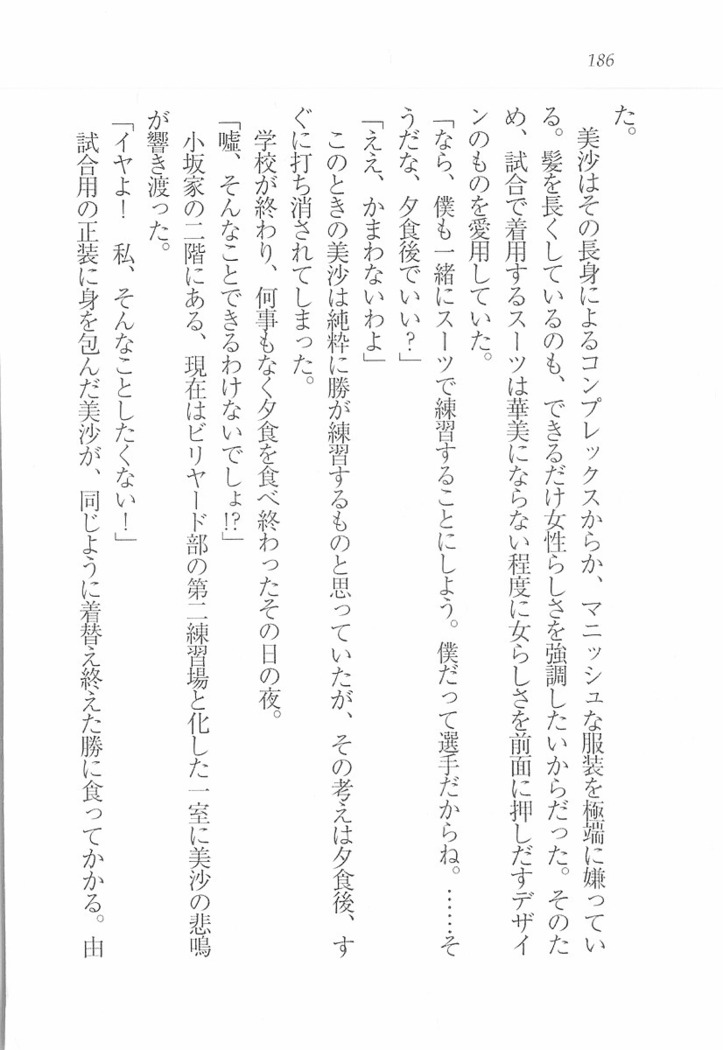 186
た。
　美沙はその長身によるコンプレックスからか、マニッシュな服装を極端に嫌ってい
る。髪を長くしているのも、できるだけ女性らしさを強調したいからだった。そのた
め、試合で着用するスーツは華美にならない程度に女らしさを前面に押しだすデザイ
ンのものを愛用していた。
「なら、僕も一緒にスーツで練習することにしよう。僕だって選手だからね。……そ
うだな、夕食後でいい？」
「ええ、かまわないわよ」
　このときの美沙は純粋に勝が練習するものと思っていたが、その考えは夕食後、す
ぐに打ち消されてしまった。
　学校が終わり、何事もなく夕食を食べ終わったその日の夜。
「嘘、そんなことできるわけないでしょ!?」
　小坂家の二階にある、現在はビリヤード部の第二練習場と化した一室に美沙の悲鳴
が響き渡った。
「イヤよ！　私、そんなことしたくない！」
　試合用の正装に身を包んだ美沙が、同じように着替え終えた勝に食ってかかる。由